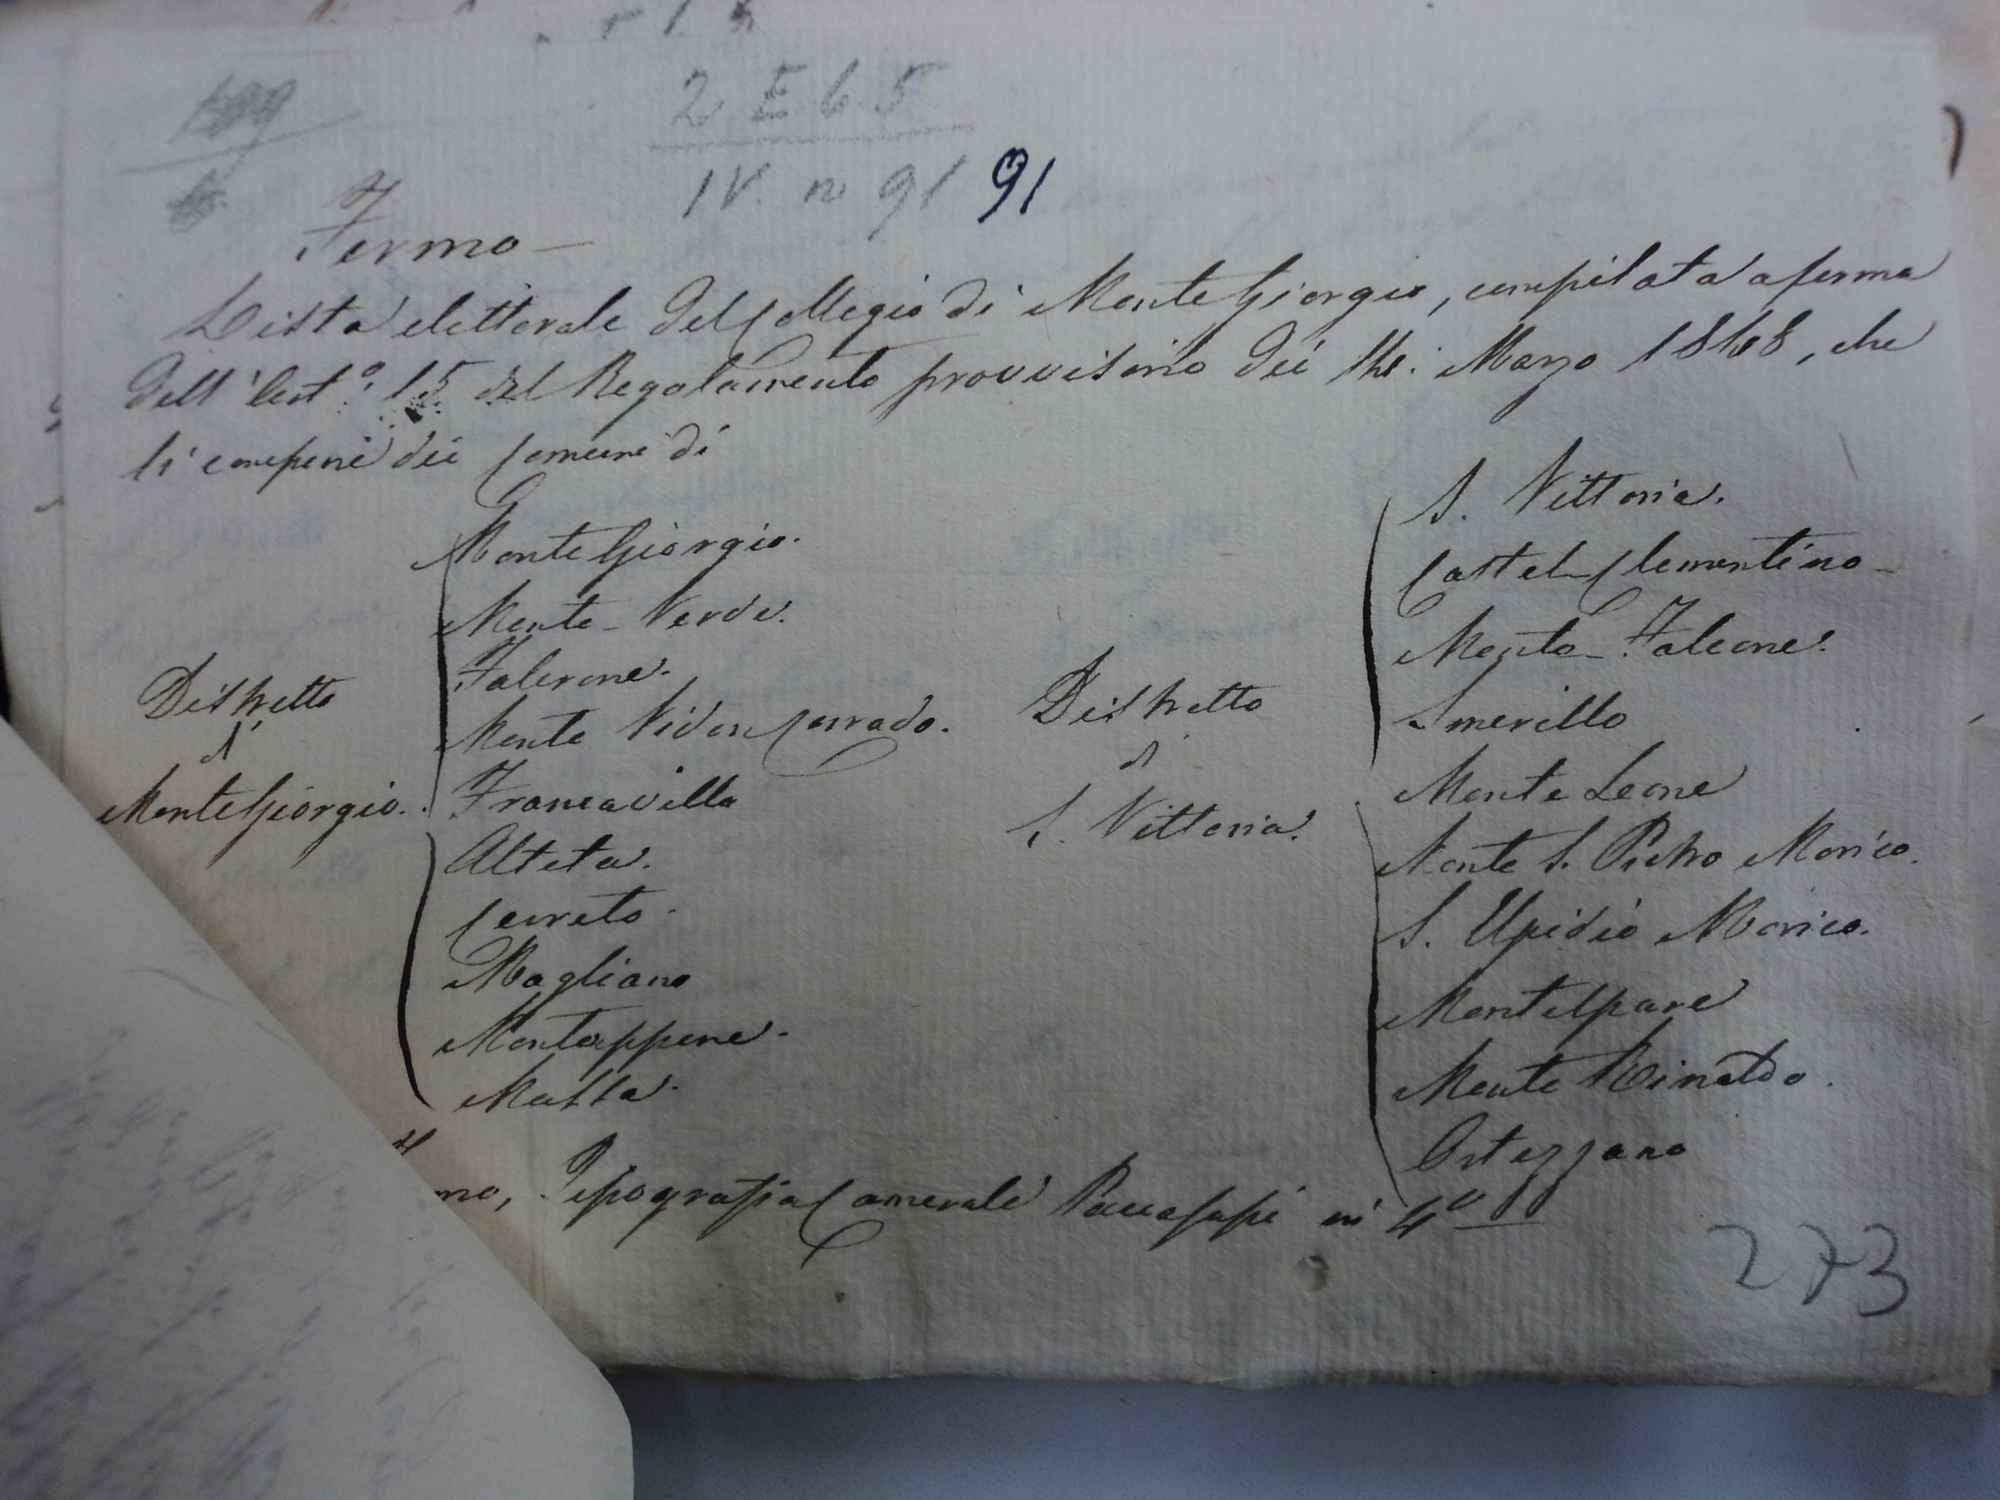 2 E 6. 5
IV. n 91 91
Fermo
Lista elettorale del Collegio di Monte Giorgio, compilata a forma
dell'Art.º 15 del Regolamento provvisorio dei Marzo 1848, che
si compone dei Comuni di
Distretto
di
Monte Giorgio.
Monte Giorgio.
Monte Verde.
Falerone.
Monte Vidon Corrado.
Francavilla
Alteta.
Cerreto.
Magliano
Montappone.
Massa.
Distretto
di
S. Vittoria.
S. Vittoria.
Castel Clementino
Monte Falcone.
Smerillo
Monte Leone
Monte S. Pietro Morico.
S. Elpidio Morico.
Montelpare
Monte Rinaldo.
Ortezzano
mo, Tipografia Camerale Paccasassi in 4º
273